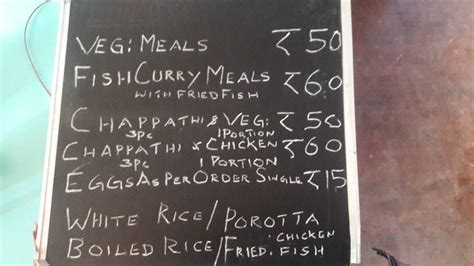 VEG: MEALS ₹50
FISH CURRY MEALS ₹60
WITH FRIED FISH
CHAPPATHI & VEG: ₹50
3PC 1 PORTION
CHAPPATHI & CHICKEN ₹60
3PC 1 PORTION
EGGS AS PER ORDER SINGLE ₹15
WHITE RICE/POROTTA
BOILED RICE/FRIED: CHICKEN
FISH